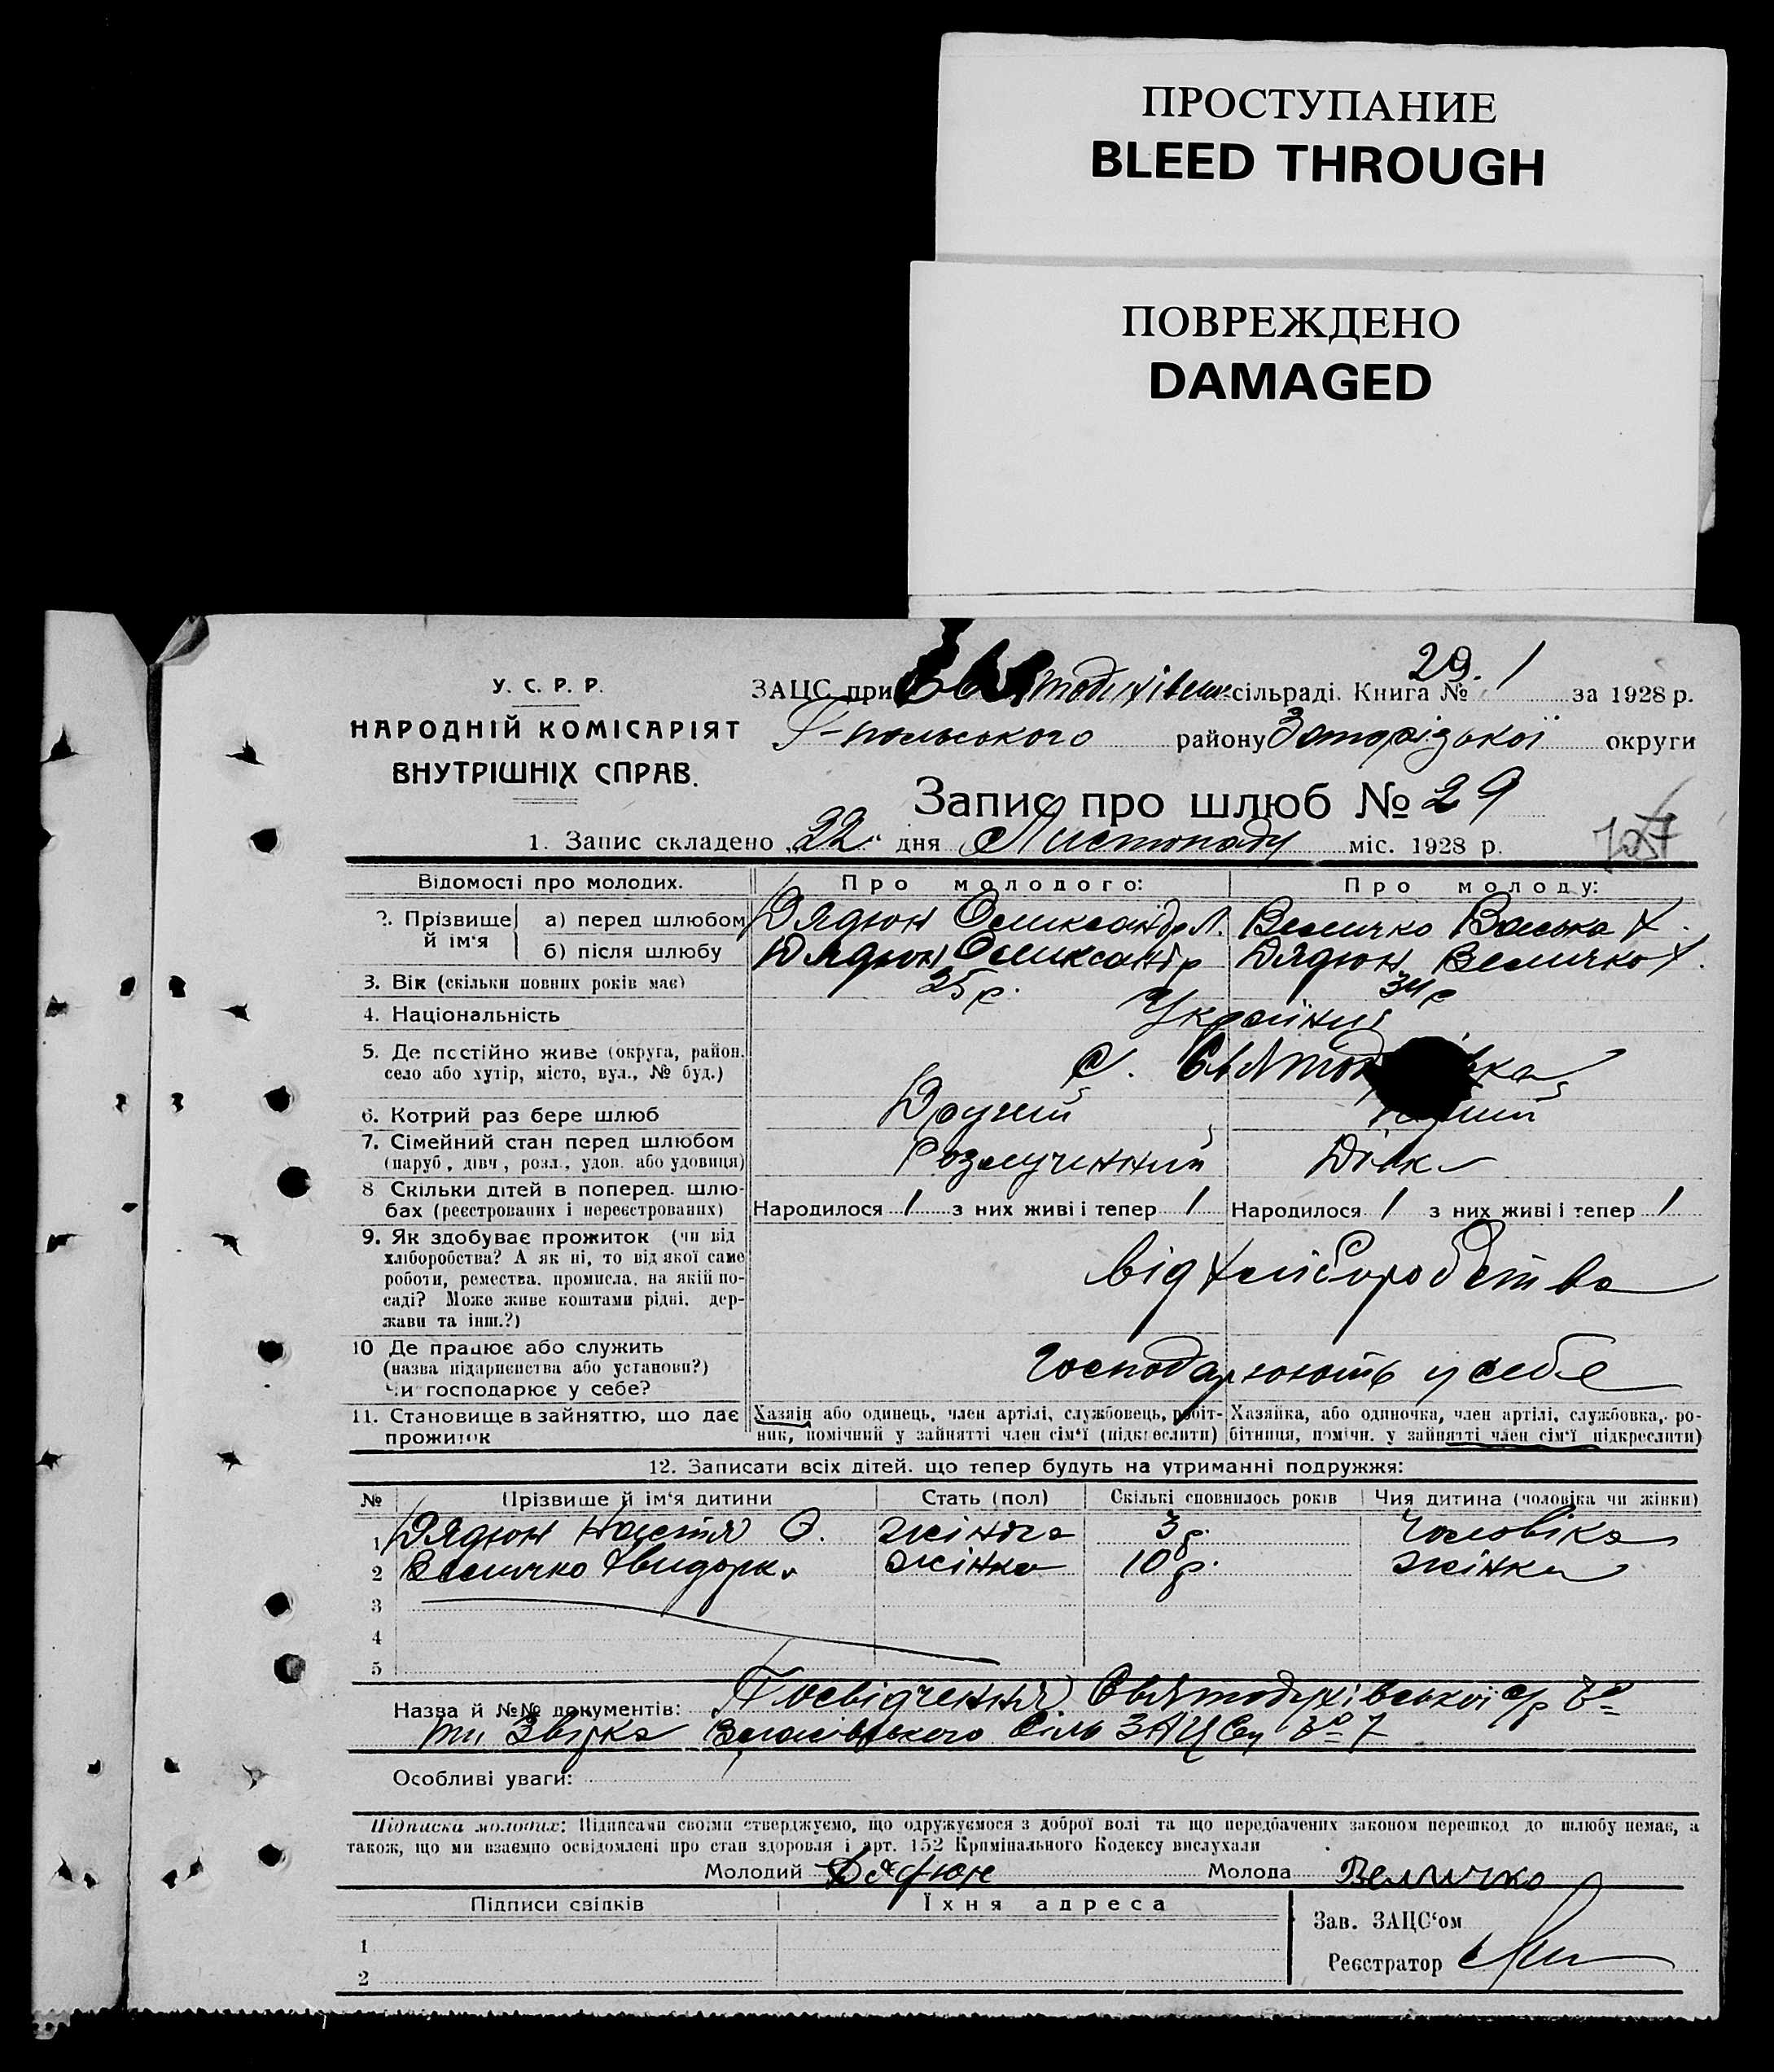 ПРОСТУПАНИЕ
BLEED THROUGH
ПОВРЕЖДЕНО
DAMAGED
У. С. Р. Р.
НАРОДНІЙ КОМІСАРІЯТ
ВНУТРІШНІХ СПРАВ.
29.
ЗАЦС при сільраді. Книга № 1 за 1928 р.
району Запорізької округи
Запис про шлюб № 29
1. Запис складено „22" дня Листопаду міс. 1928 р.
Відомості про молодих. Про молодого: Про молоду:
2. Прізвище й ім'я а) перед шлюбом Дядюн Олександр Л. Величко Васька Х.
б) після шлюбу Дядюн Олександр Дядюн Величко Х.
3. Вік (скільки повних років має) 25 р. 34 р
4. Національність Українці
5. Де постійно живе (округа, район, с.
село або хутір, місто, вул., № буд.)
6. Котрий раз бере шлюб Другий
7. Сімейний стан перед шлюбом Розлучений Дівка
(паруб., дівч., розл., удов. або удовиця)
8 Скільки дітей в поперед. шлю-
бах (реєстрованих і нереєстрованих) Народилося 1 з них живі і тепер 1 Народилося 1 з них живі і тепер 1
9. Як здобуває прожиток (чи від
хліборобства? А як ні, то від якої саме від хліборобства
роботи, ремества, промисла, на якій по-
саді? Може живе коштами рідні, дер-
жави та інш.?)
10 Де працює або служить
(назва підприємства або установи?) Господарюють у себе
Чи господарює у себе?
11. Становище в зайняттю, що дає Хазяїн або одинець, член артілі, службовець, робіт- Хазяйка, або одиночка, член артілі, службовка, ро-
прожиток ник, помічний у зайнятті член сім'ї (підкреслити) бітниця, помічн. у зайнятті член сім'ї підкреслити)
12. Записати всіх дітей, що тепер будуть на утриманні подружжя:
№ Прізвище й ім'я дитини Стать (пол) Скількі сповнилось років Чия дитина (чоловіка чи жінки)
1 Дядюн Настя О. жінка 3 р. Чоловіка
2 Величко жінка 10 р. жінки
3
4
5
Назва й №№ документів: Посвідчення Святодухівської с/р №
та Звірка ЗАЦСу № 7
Особливі уваги:
Підписка молодих: Підписами своїми стверджуємо, що одружуємося з доброї волі та що передбачених законом перешкод до шлюбу немає, а
також, що ми взаємно освідомлені про стан здоровля і арт. 152 Кримінального Кодексу вислухали
Молодий Дядюн Молода Величко
Підписи свідків Їхня адреса
Зав. ЗАЦС'ом
1
Реєстратор
2